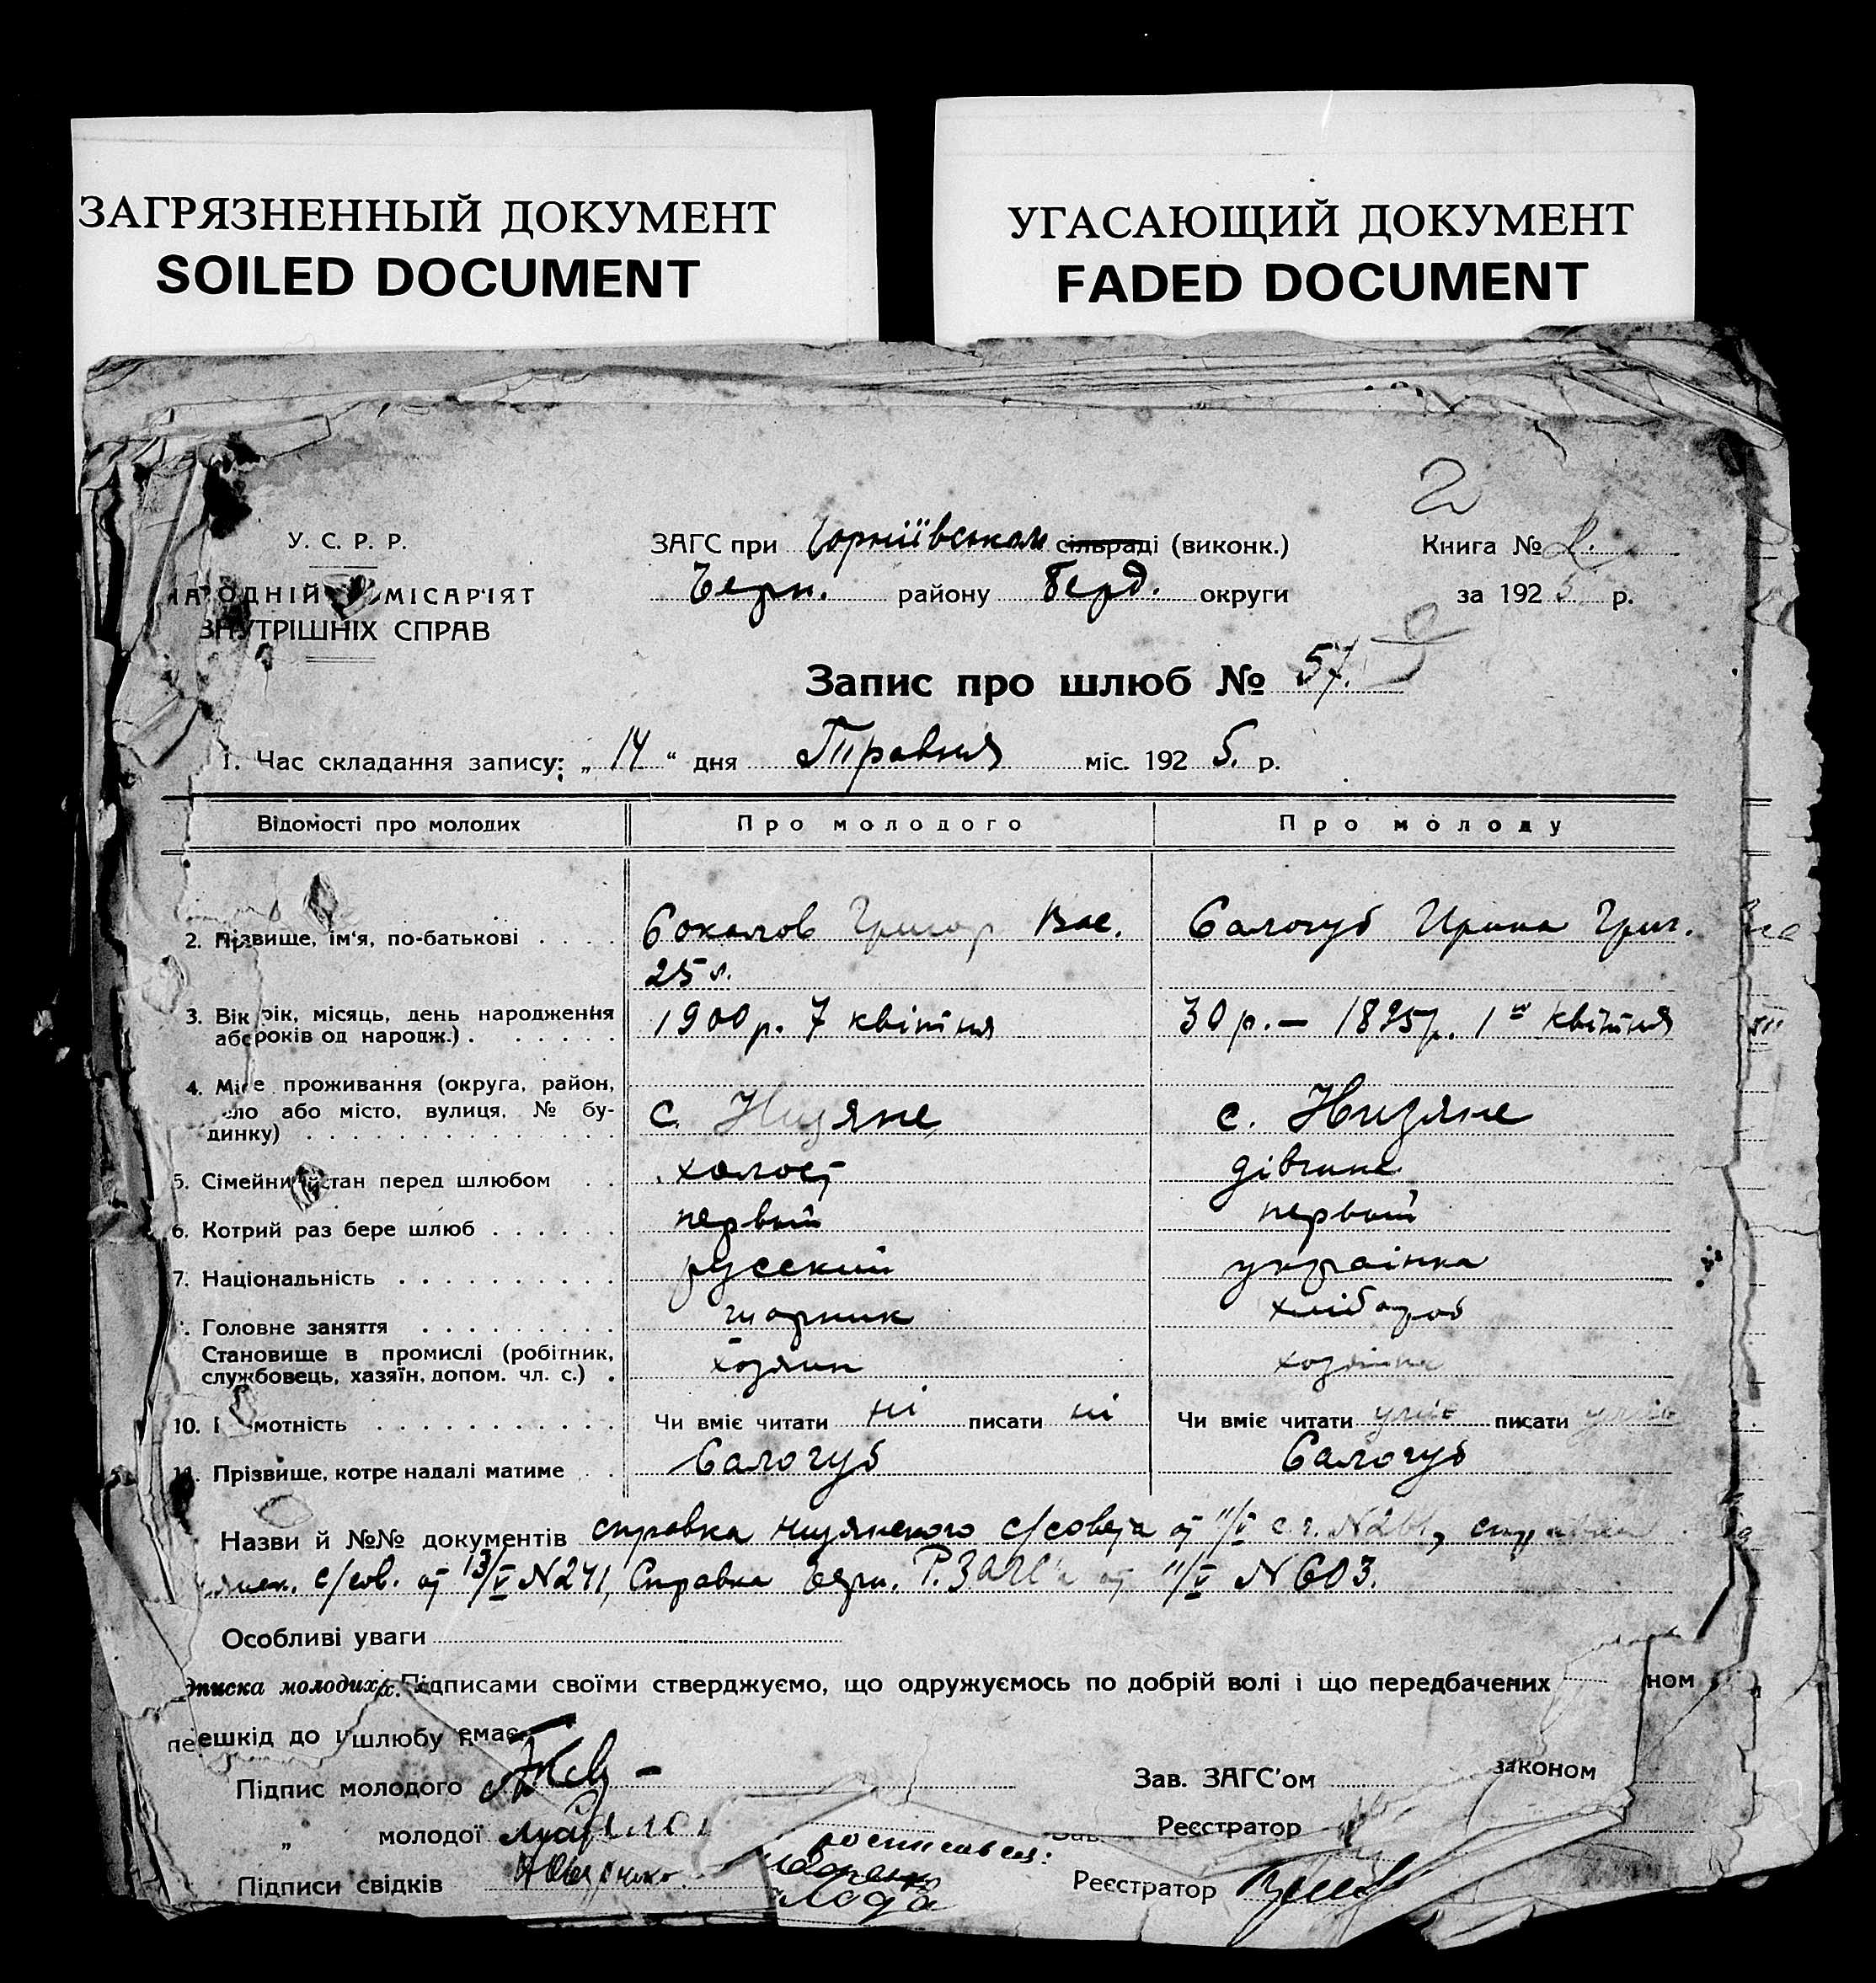 ЗАГРЯЗНЕННЫЙ ДОКУМЕНТ
SOILED DOCUMENT
УГАСАЮЩИЙ ДОКУМЕНТ
FADED DOCUMENT
2
У. С. Р. Р.
НАРОДНІЙ МІСАРІЯТ
ВНУТРІШНІХ СПРАВ
ЗАГС при сільраді (виконк.)
Черн. району Берд. округи
Книга № 2.
за 1925 р.
Запис про шлюб № 57.
1. Час складання запису: „ 14 “ дня Травня міс. 1925. р.
Відомості про молодих Про молодого Про молоду
2. Прізвище, ім'я, по-батькові . . . . Соколов Григор Вас. Салогуб Ирина Григ.
25 л.
3. Вік рік, місяць, день народження 1900 р. 7 квітня 30 р. — 1895 р. 1го квітня
або років од народж.) . . . . . .
4. Місце проживання (округа, район,
село або місто, вулиця, № бу-
динку) . . . . . . с. Низяне с. Низяне
5. Сімейний стан перед шлюбом . . холост дівчина
6. Котрий раз бере шлюб . . . . . . первый первый
7. Національність . . . . . . . . . . русский українка
Головне заняття . . . . . . . . . хлібороб
Становище в промислі (робітник,
службовець, хазяїн, допом. чл. с.) . хозяин хозяйка
10. мотність . . . . . . . . . . . Чи вміє читати ні писати ні Чи вміє читати уміє писати уміє
11. Прізвище, котре надалі матиме . . Салогуб Салогуб
Назви й №№ документів справка низянского с/совета от 11/V с.г. справка
с/сов. от 13/V N241, Справка Черн. Р.ЗАГС'а от 11/V N603.
Особливі уваги
дписка молодих. Підписами своїми стверджуємо, що одружуємось по добрій волі і що передбачених ном
пеешкід до шлюбу немає
законом
Підпис молодого
Зав. ЗАГС'ом
„ молодої
Реєстратор
росписався:
Підписи свідків
Реєстратор